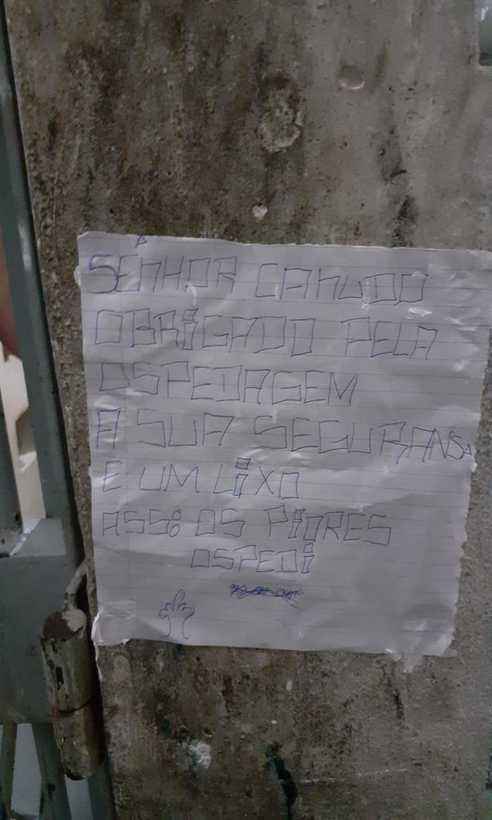 SENHOR CANUDO
OBRIGADO PELA
OSPEDAGEM
A SUA SEGURANSA
E UM LIXO
ASSi OS PiORES
OSPEDi